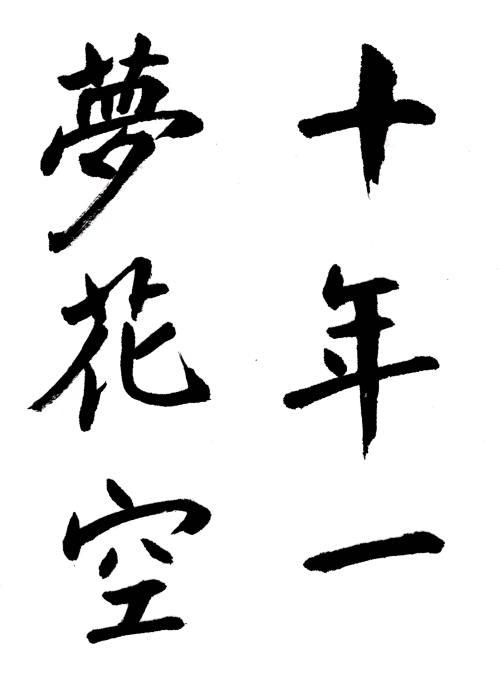 十年一
夢花空